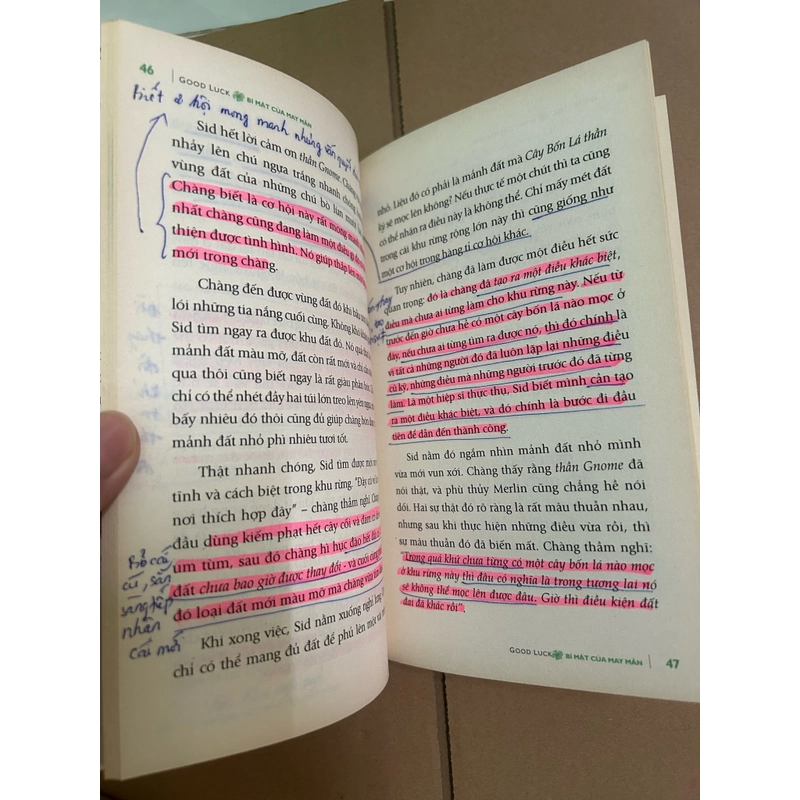 46
GOOD LUCK BÍ MẬT CỦA MAY MẮN
Biết cơ hội mong manh nhưng vẫn
Sid hết lời cảm ơn thần Gnome. Chàng
nhảy lên chú ngựa trắng nhanh chóng
vùng đất của những chú bò lùn
Chàng biết là cơ hội này rất mỏng manh
nhất chàng cũng đang làm một điều gì đó
thiện được tình hình. Nó giúp thắp lên
mới trong chàng.
Chàng đến được vùng đất đó khi bầu
lói những tia nắng cuối cùng. Không khó
Sid tìm ngay ra được khu đất đó. Nó quả
mảnh đất màu mỡ, đất còn rất mới và chỉ cần
qua thôi cũng biết ngay là rất giàu phân bón.
chỉ có thể nhét đầy hai túi lớn treo lên yên ngựa,
bấy nhiêu đó thôi cũng đủ giúp chàng bón
mảnh đất nhỏ phì nhiêu tươi tốt.
Thật nhanh chóng, Sid tìm được một nơi
tĩnh và cách biệt trong khu rừng. "Đây có vẻ là
nơi thích hợp đây" – chàng thầm nghĩ. Chàng
đầu dùng kiếm phạt hết cây cối và đám cỏ
um tùm, sau đó chàng hì hục đào hết
đất chưa bao giờ được thay đổi - và cuối cùng
đổ loại đất mới màu mỡ mà chàng vừa tìm
Khi xong việc, Sid nằm xuống nghỉ
chỉ có thể mang đủ đất để phủ lên một
Bỏ cái
cũ, sẵn
sàng tiếp
nhận
cái mới
nhỏ. Liệu đó có phải là mảnh đất mà Cây Bốn Lá thần
kỳ sẽ mọc lên không? Nếu thực tế một chút thì ta cũng
có thể nhận ra điều này là không thể. Chỉ mấy mét đất
trong cái khu rừng rộng lớn này thì cũng giống như
một cơ hội trong hàng tỉ cơ hội khác.
Tuy nhiên, chàng đã làm được một điều hết sức
quan trọng: đó là chàng đã tạo ra một điều khác biệt,
điều mà chưa ai từng làm cho khu rừng này. Nếu từ
trước đến giờ chưa hề có một cây bốn lá nào mọc ở
đây, nếu chưa ai từng tìm ra được nó, thì đó chính là
vì tất cả những người đó đã luôn lặp lại những điều
cũ kỹ, những điều mà những người trước đó đã từng
làm. Là một hiệp sĩ thực thụ, Sid biết mình cần tạo
ra một điều khác biệt, và đó chính là bước đi đầu
tiên để dẫn đến thành công.
Sid nằm đó ngắm nhìn mảnh đất nhỏ mình
vừa mới vun xới. Chàng thấy rằng thần Gnome đã
nói thật, và phù thủy Merlin cũng chẳng hề nói
dối. Hai sự thật đó rõ ràng là rất mâu thuẫn nhau,
nhưng sau khi thực hiện những điều vừa rồi, thì
sự mâu thuẫn đó đã biến mất. Chàng thầm nghĩ:
"Trong quá khứ chưa từng có một cây bốn lá nào mọc
ở khu rừng này thì đâu có nghĩa là trong tương lai nó
sẽ không thể mọc lên được đâu. Giờ thì điều kiện đất
đai đã khác rồi".
GOOD LUCK BÍ MẬT CỦA MAY MẮN
47